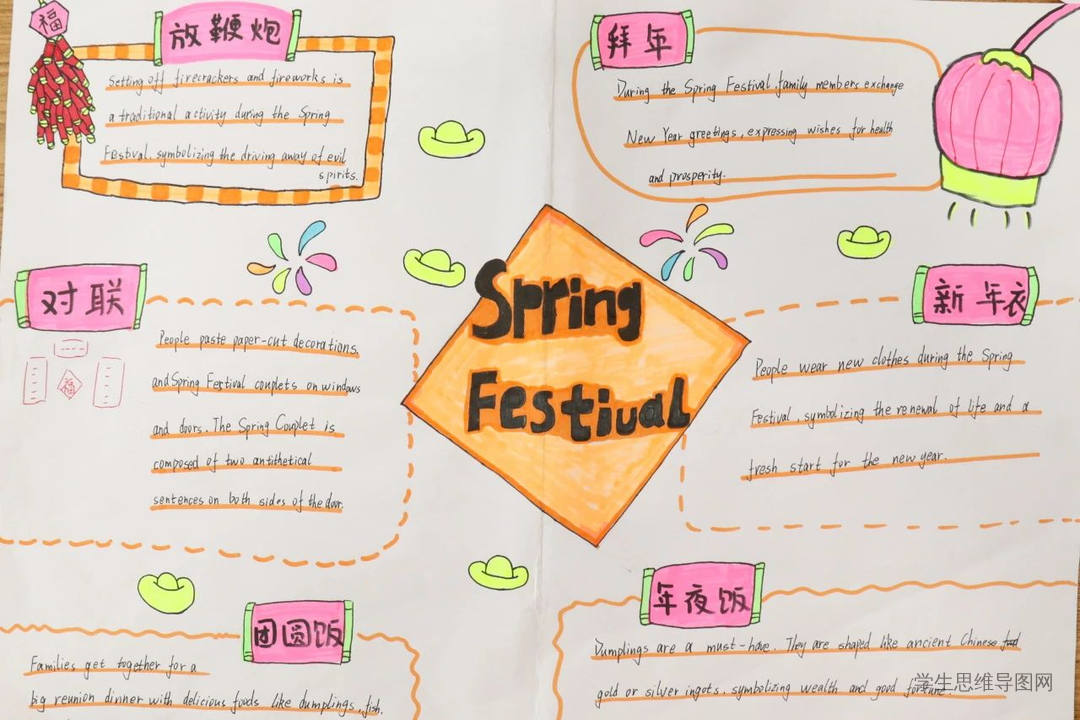 福
放鞭炮
Setting off firecrackers and fireworks is
a traditional activity during the Spring
Festival, symbolizing the driving away of evil
spirits.
拜年
During the Spring Festival, family members exchange
New Year greetings, expressing wishes for health
and prosperity.
Spring
Festival
对联
福
People paste paper-cut decorations
and Spring Festival couplets on windows
and doors. The Spring Couplet is
composed of two antithetical
sentences on both sides of the door.
新年衣
People wear new clothes during the Spring
Festival, symbolizing the renewal of life and a
fresh start for the new year.
团圆饭
Families get together for a
big reunion dinner with delicious foods like dumplings, fish.
年夜饭
Dumplings are a must-have. They are shaped like ancient Chinese
gold or silver ingots, symbolizing wealth and good fortune.
学生思维导图网